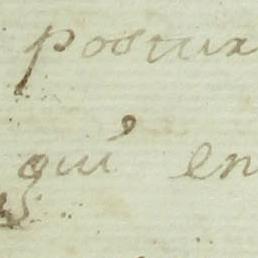 postux
qui en